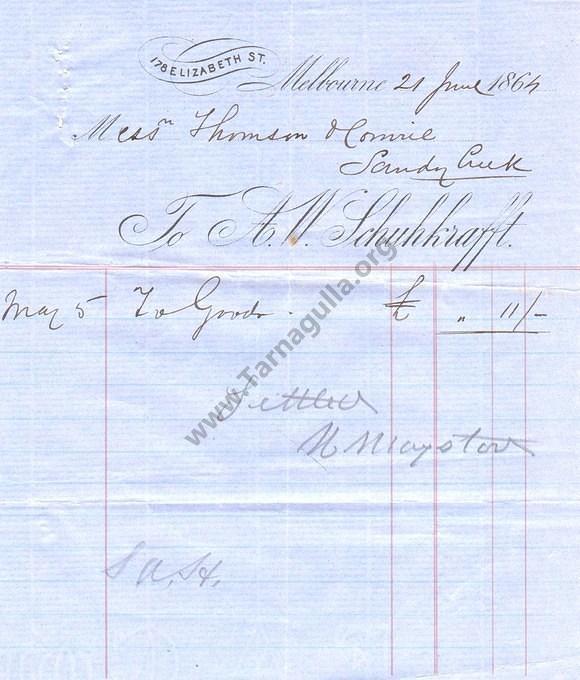 178 ELIZABETH ST.
Melbourne 21 June 1864
Messrs Thomson & Comrie
Sandy Creek
To A. W. Schuhkrafft.
May 5 To Goods. £ " 11/-
Settled
S A. H.
www.Tarnagulla.org